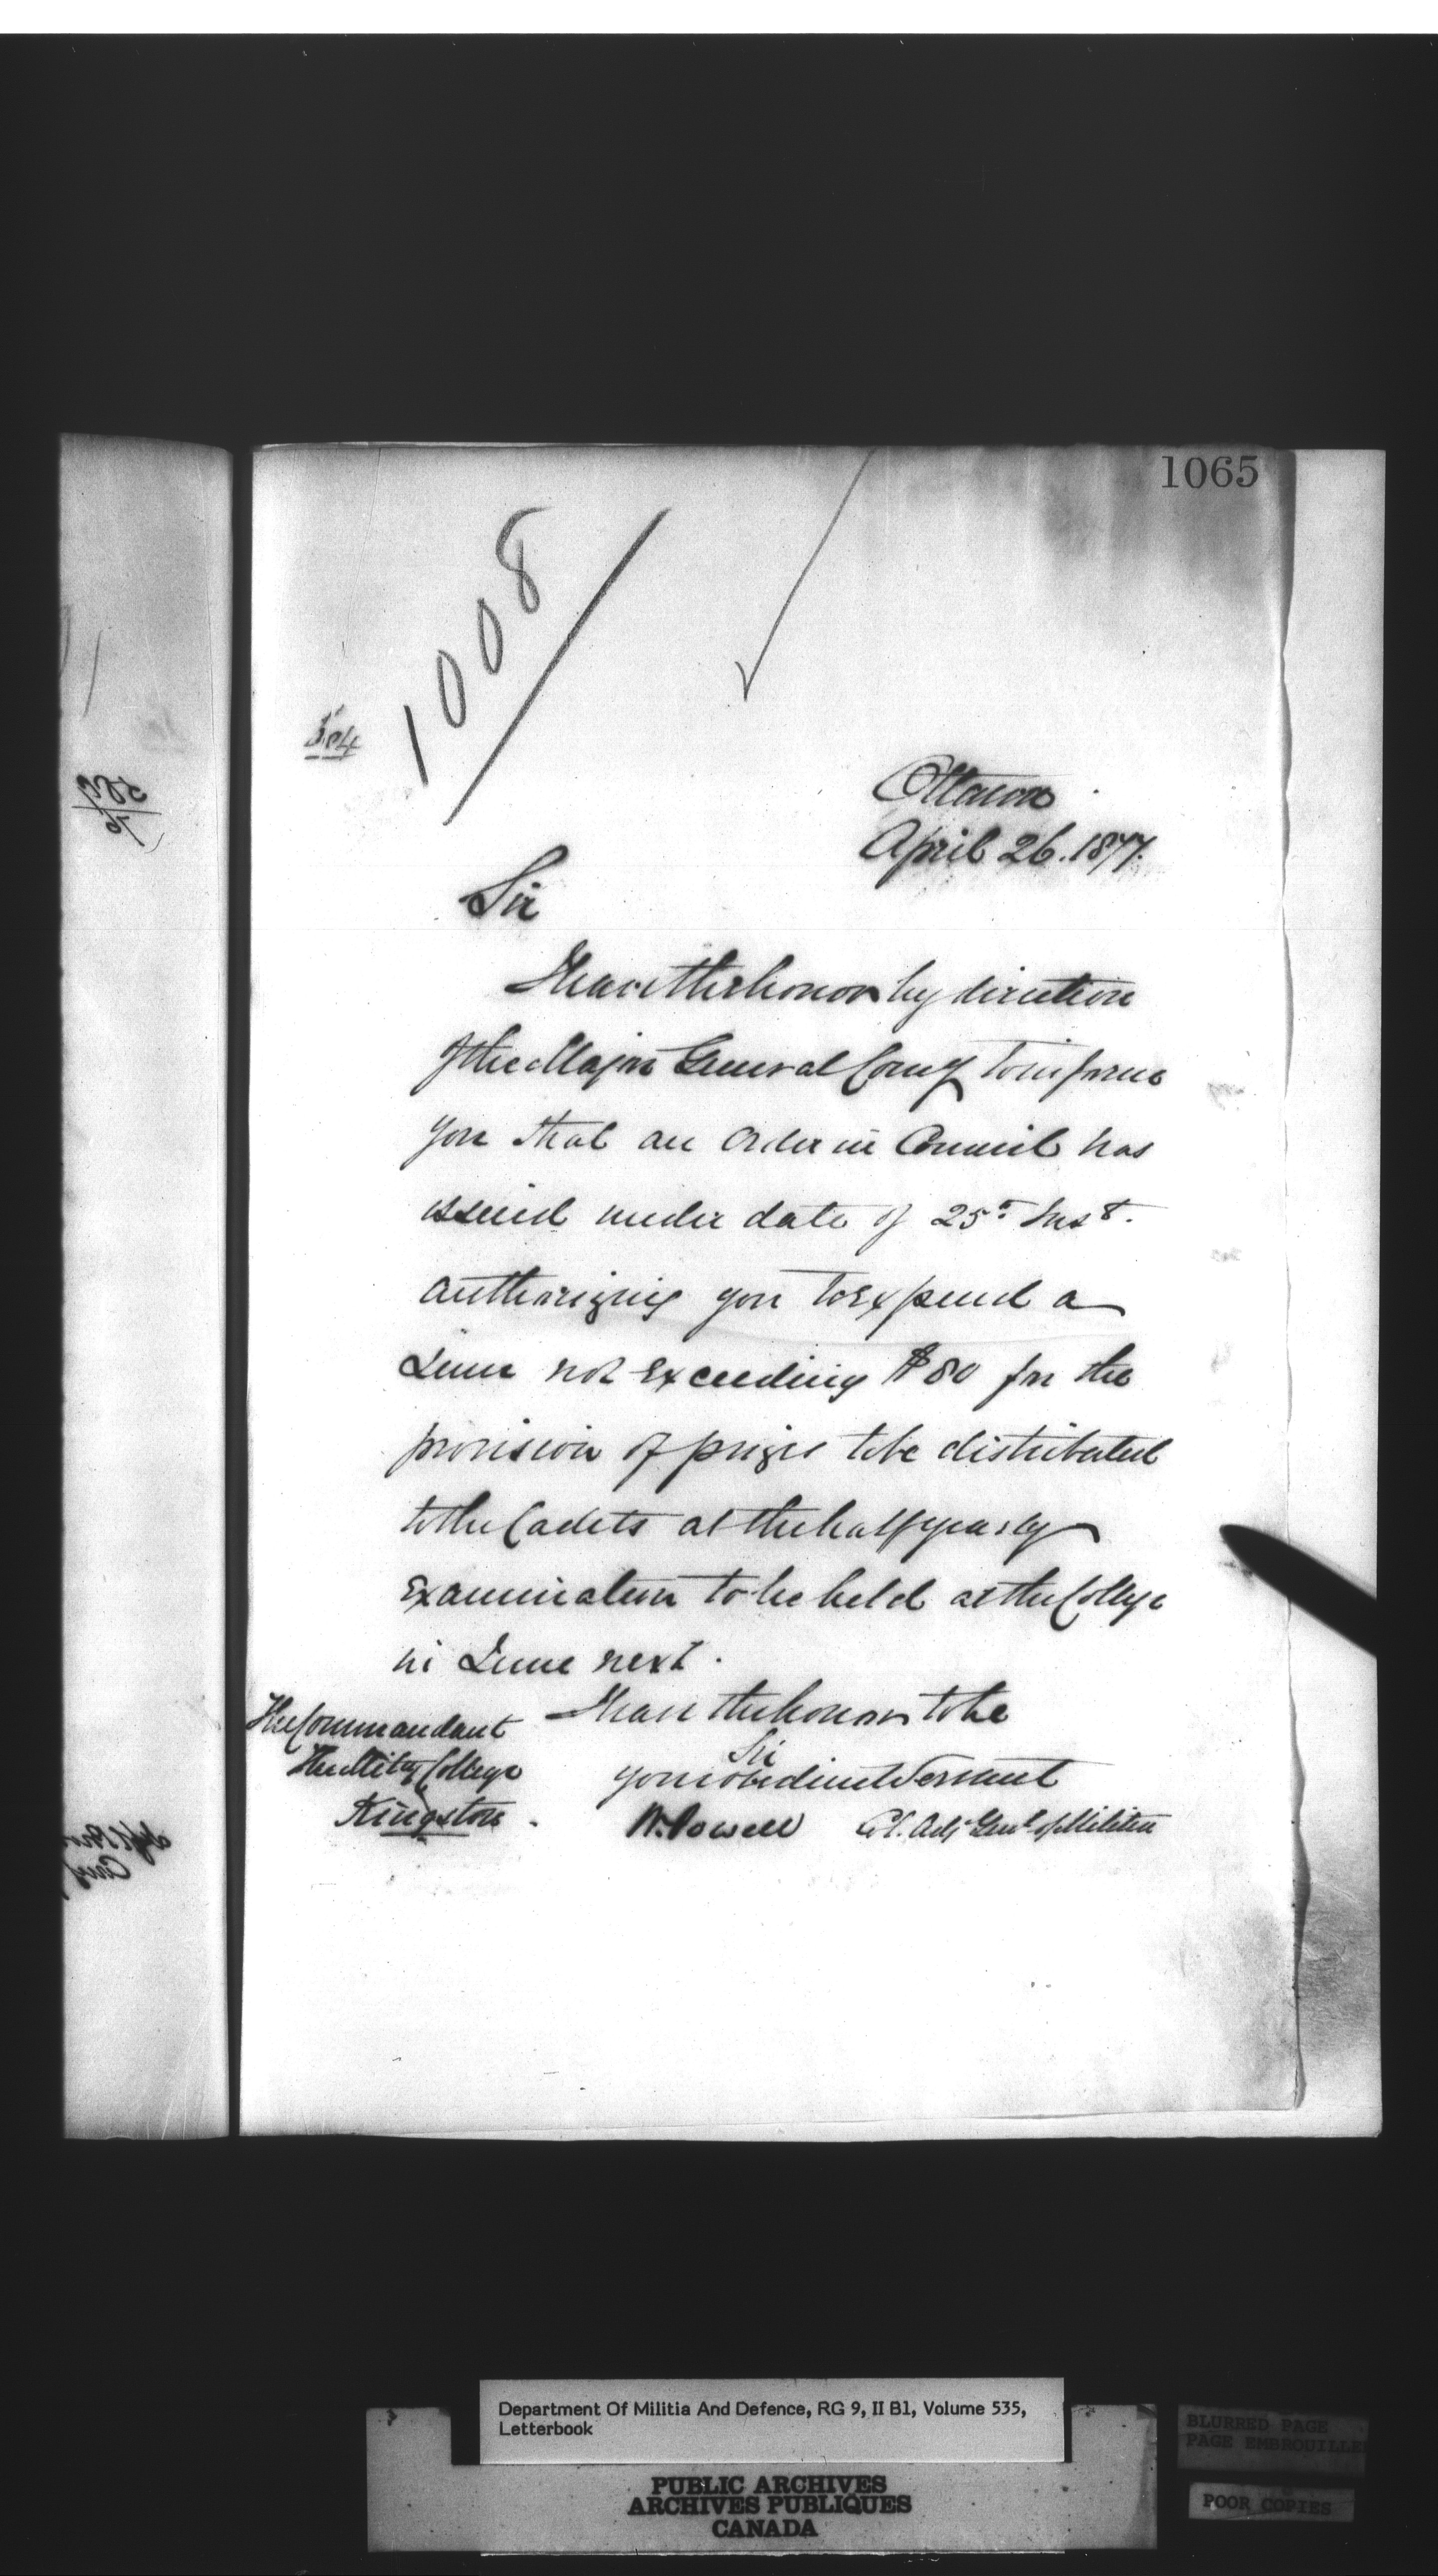 1065
1008
504
Ottawa
April 26. 1877.
Sir
I have the honor by direction
of the Major General Comg to inform
you that an Order in Council has
issued under date of 25th Inst.
authorizing you to expend a
sum not exceeding $80 for the
provision of prizes to be distributed
to the Cadets at the half yearly
Examination to be held at the College
in June next.
I have the honor to be
Sir
your obedient Servant
W. Powell Col. Adjt Genl of Militia
The Commandant
The Mility College
Kingston.
Department Of Militia And Defence, RG 9, II B1, Volume 535,
Letterbook
PUBLIC ARCHIVES
ARCHIVES PUBLIQUES
CANADA
BLURRED PAGE
PAGE EMBROUILLEE
POOR COPIES